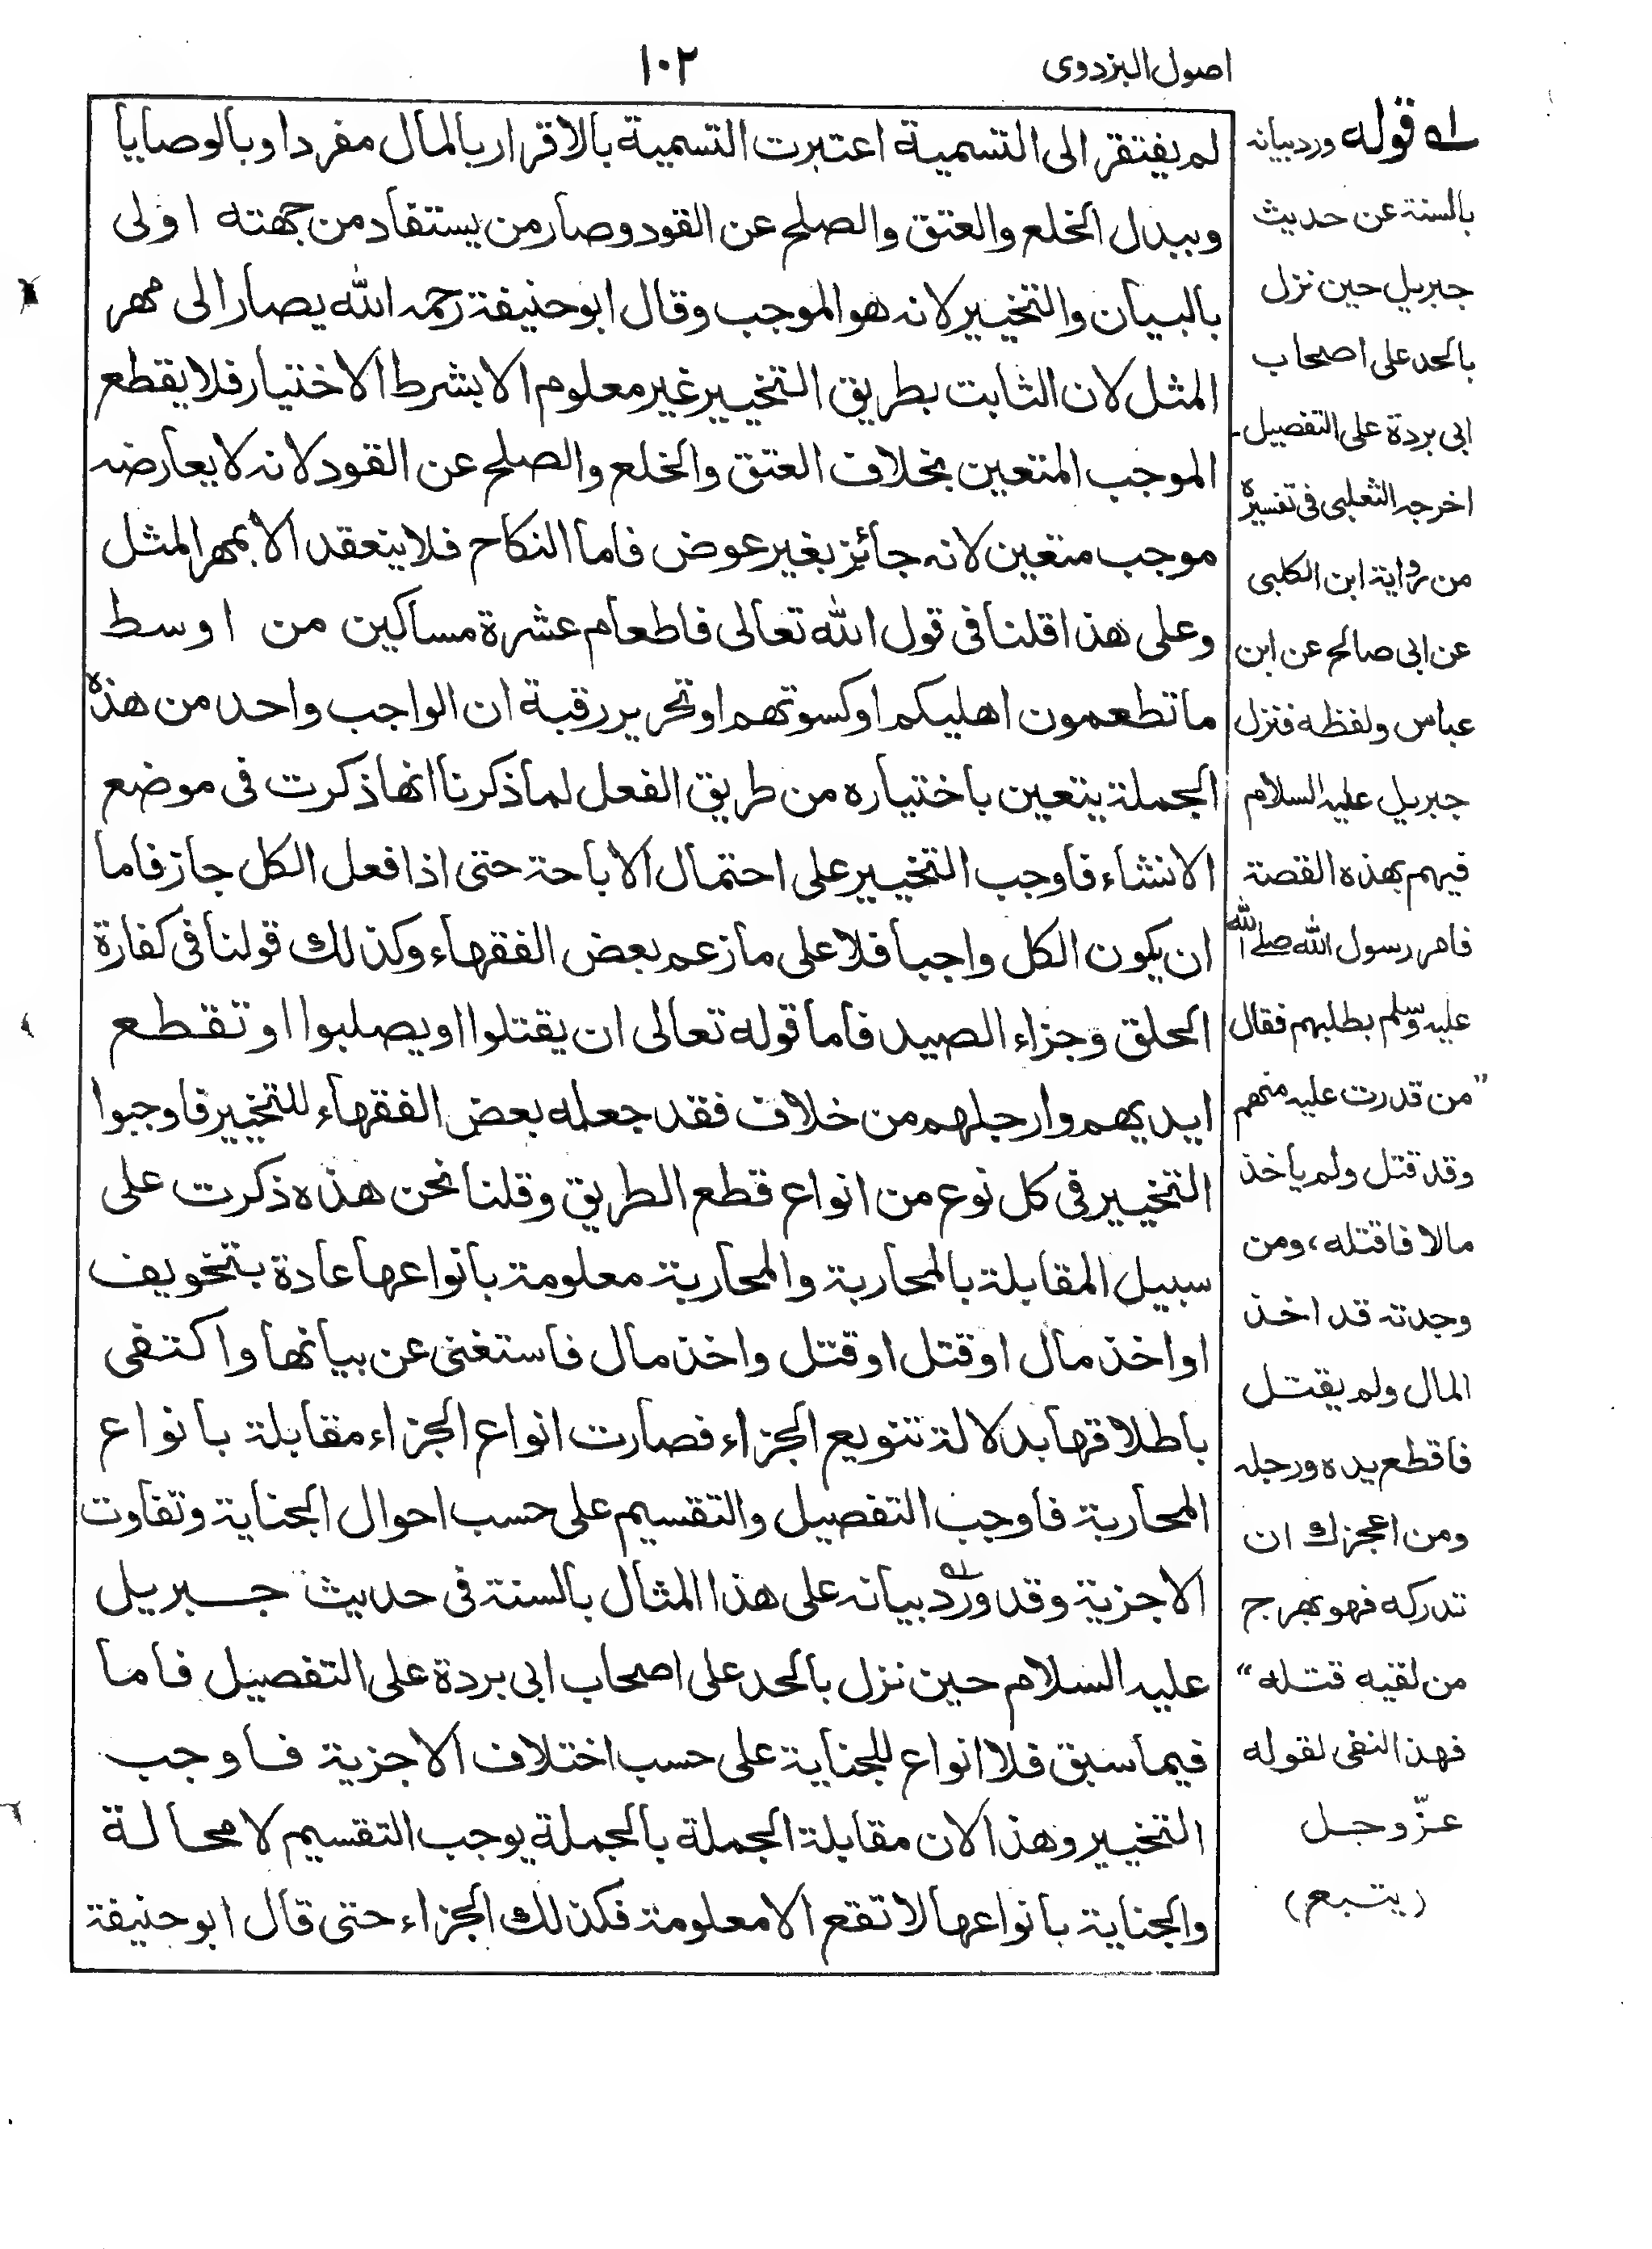 اصول البزدوى
١٠٢
لم يفتقر الى التسمية اعتبرت التسمية بالاقرار بالمال مفردا وبالوصايا
وببدل الخلع والعتق والصلح عن القود وصار من يستفاد من جهته اولى
بالبيان والتخيير لانه هو الموجب وقال ابو حنيفة رحمه الله يصار الى مهر
المثل لان الثابت بطريق التخيير غير معلوم الا بشرط الاختيار فلا يقطع
الموجب المتعين بخلاف العتق والخلع والصلح عن القود لانه لا يعارضه
موجب متعين لانه جائز بغير عوض فاما النكاح فلا ينعقد الا بمهر المثل
وعلى هذا قلنا فى قول الله تعالى فاطعام عشرة مساكين من اوسط
ما تطعمون اهليكم او كسوتهم او تحرير رقبة ان الواجب واحد من هذه
الجملة يتعين باختياره من طريق الفعل لما ذكرنا انها ذكرت فى موضع
الانشاء فاوجب التخيير على احتمال الاباحة حتى اذا فعل الكل جاز فاما
ان يكون الكل واجبا فلا على ما زعم بعض الفقهاء وكذلك قولنا فى كفارة
الحلق وجزاء الصيد فاما قوله تعالى ان يقتلوا او يصلبوا او تقطع
ايديهم وارجلهم من خلاف فقد جعله بعض الفقهاء للتخيير فاوجبوا
التخيير فى كل نوع من انواع قطع الطريق وقلنا نحن هذه ذكرت على
سبيل المقابلة بالمحاربة والمحاربة معلومة بانواعها عادة بتخويف
او اخذ مال او قتل او قتل واخذ مال فاستغنى عن بيانها واكتفى
باطلاقها بدلالة تنويع الجزاء فصارت انواع الجزاء مقابلة بانواع
المحاربة فاوجب التفصيل والتقسيم على حسب احوال الجناية وتفاوت
الاجزية وقد ورد بيانه على هذا المثال بالسنة فى حديث جبريل
عليه السلام حين نزل بالحد على اصحاب ابى بردة على التفصيل فاما
فيما سبق فلا انواع للجناية على حسب اختلاف الاجزية فاوجب
التخيير وهذا لان مقابلة الجملة بالجملة يوجب التقسيم لا محالة
والجناية بانواعها لا تقع الا معلومة فكذلك الجزاء حتى قال ابو حنيفة
له قوله ورد بيانه
بالسنة عن حديث
جبريل حين نزل
بالحد على اصحاب
ابى بردة على التفصيل -
اخرجه الثعلبى فى تفسيره
من رواية ابن الكلبى
عن ابى صالح عن ابن
عباس ولفظه فنزل
جبريل عليه السلام
فيهم بهذه القصة
فامر رسول الله صلى الله
عليه وسلم بطلبهم فقال
"من قدرت عليه منهم
وقد قتل ولم ياخذ
مالا فاقتله، ومن
وجدته قد اخذ
المال ولم يقتل
فاقطع يده ورجله
ومن اعجزك ان
تدركه فهو بهرج
من لقيه قتله"
فهذا النفى لقوله
عزّ وجل
(يتبع)